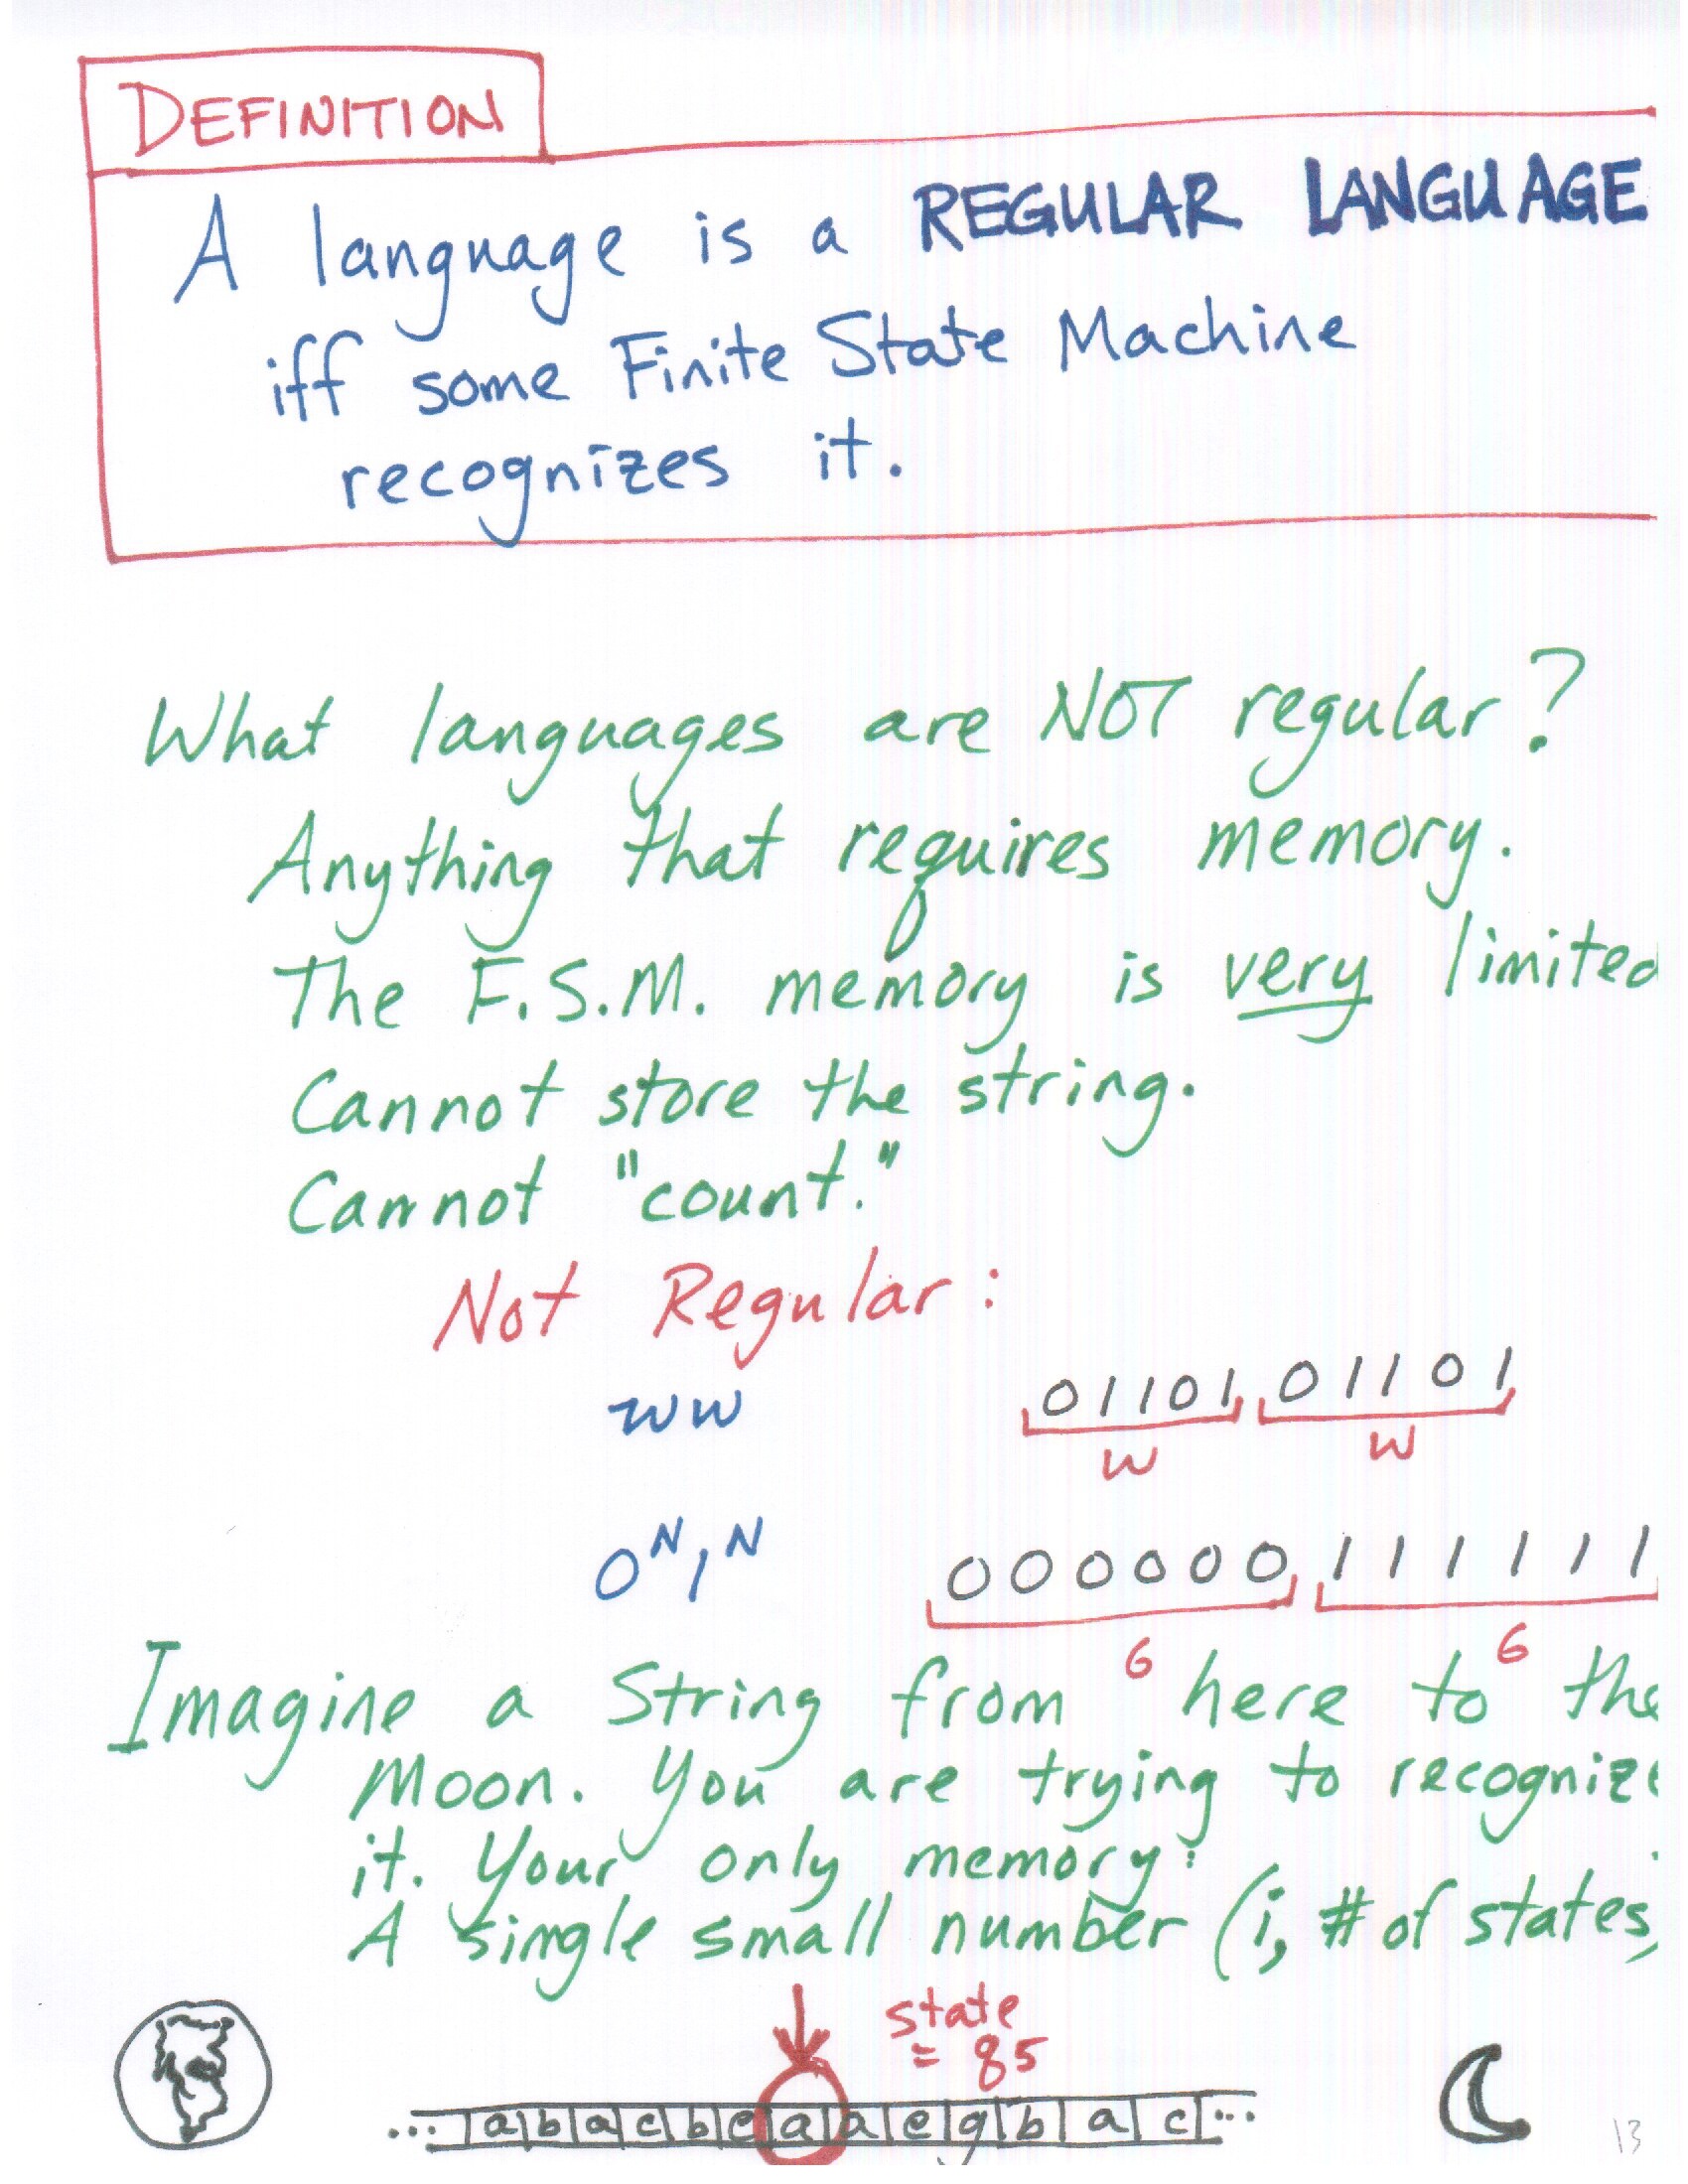 DEFINITION
A language is a REGULAR LANGUAGE
iff some Finite State Machine
recognizes it.
What languages are NOT regular?
Anything that requires memory.
The F.S.M. memory is very limited
Cannot store the string.
Cannot "count."
Not Regular:
ww 01101 01101
w w
0ᴺ1ᴺ 000000 111111
6 6
Imagine a String from here to the
Moon. You are trying to recognize
it. Your only memory:
A single small number (i, # of states)
state
= 85
... a b a c b c a a e g b a c ...
13